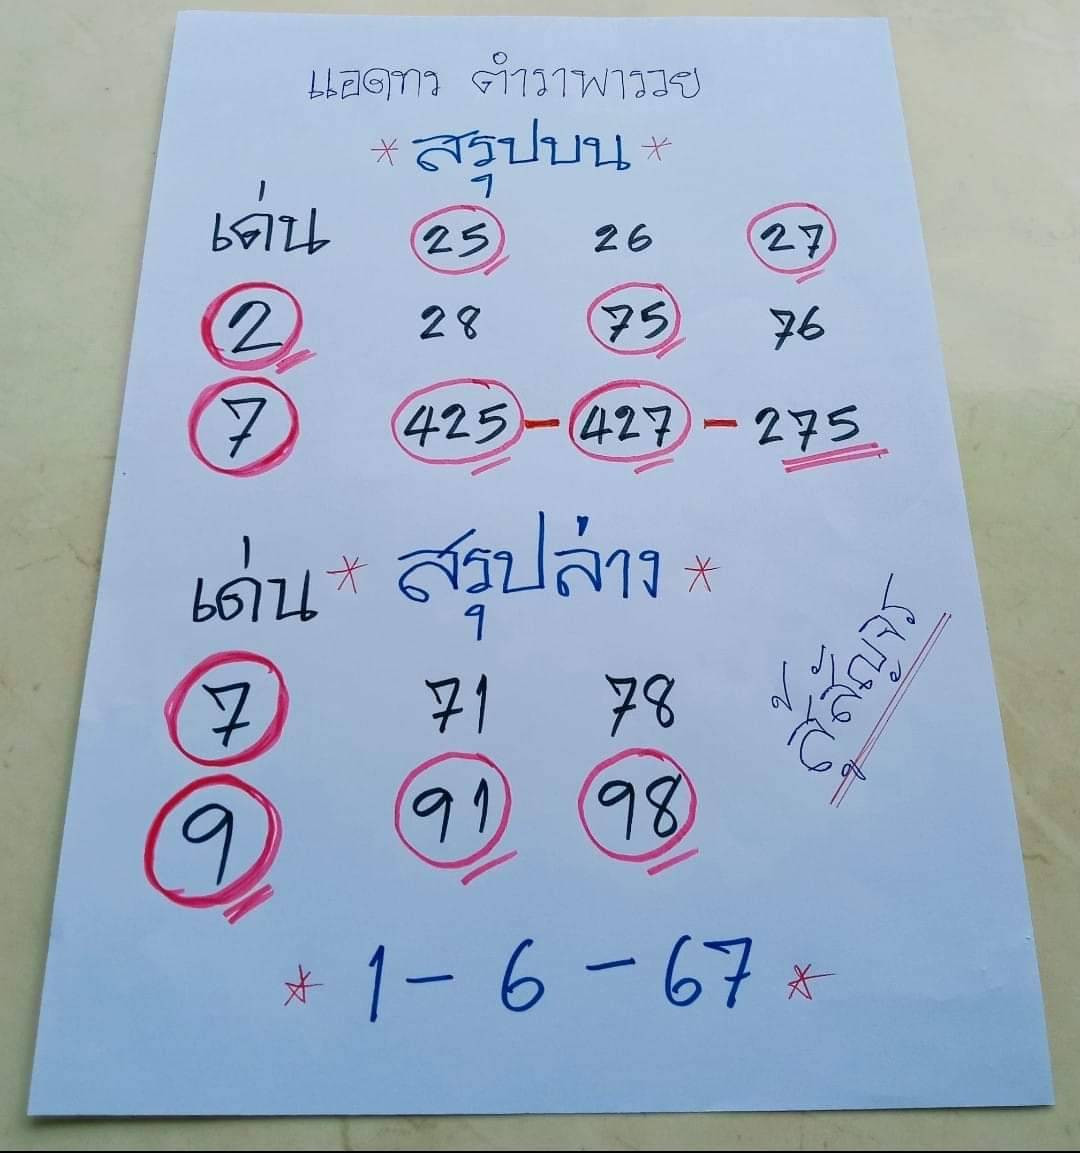 แอดทว ตำราพารวย
* สรุปบน *
เด่น 25 26 27
2 28 75 76
7 425 - 427 - 275
เด่น * สรุปล่าง *
7 71 78
9 91 98
* 1 - 6 - 67 *